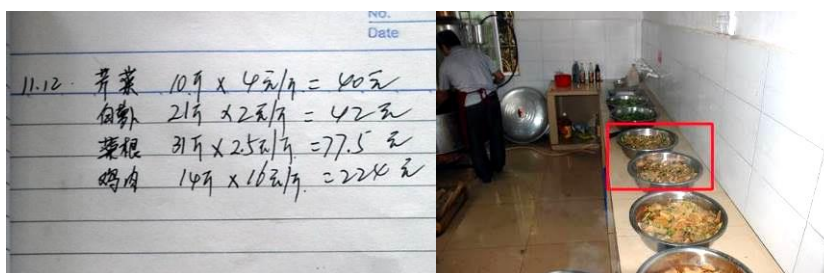 No.
Date
11.12. 芹菜 10斤 × 4元/斤 = 40元
白萝卜 21斤 × 2元/斤 = 42元
菜根 31斤 × 2.5元/斤. = 77.5 元
鸡肉 14斤 × 16元/斤. = 224 元